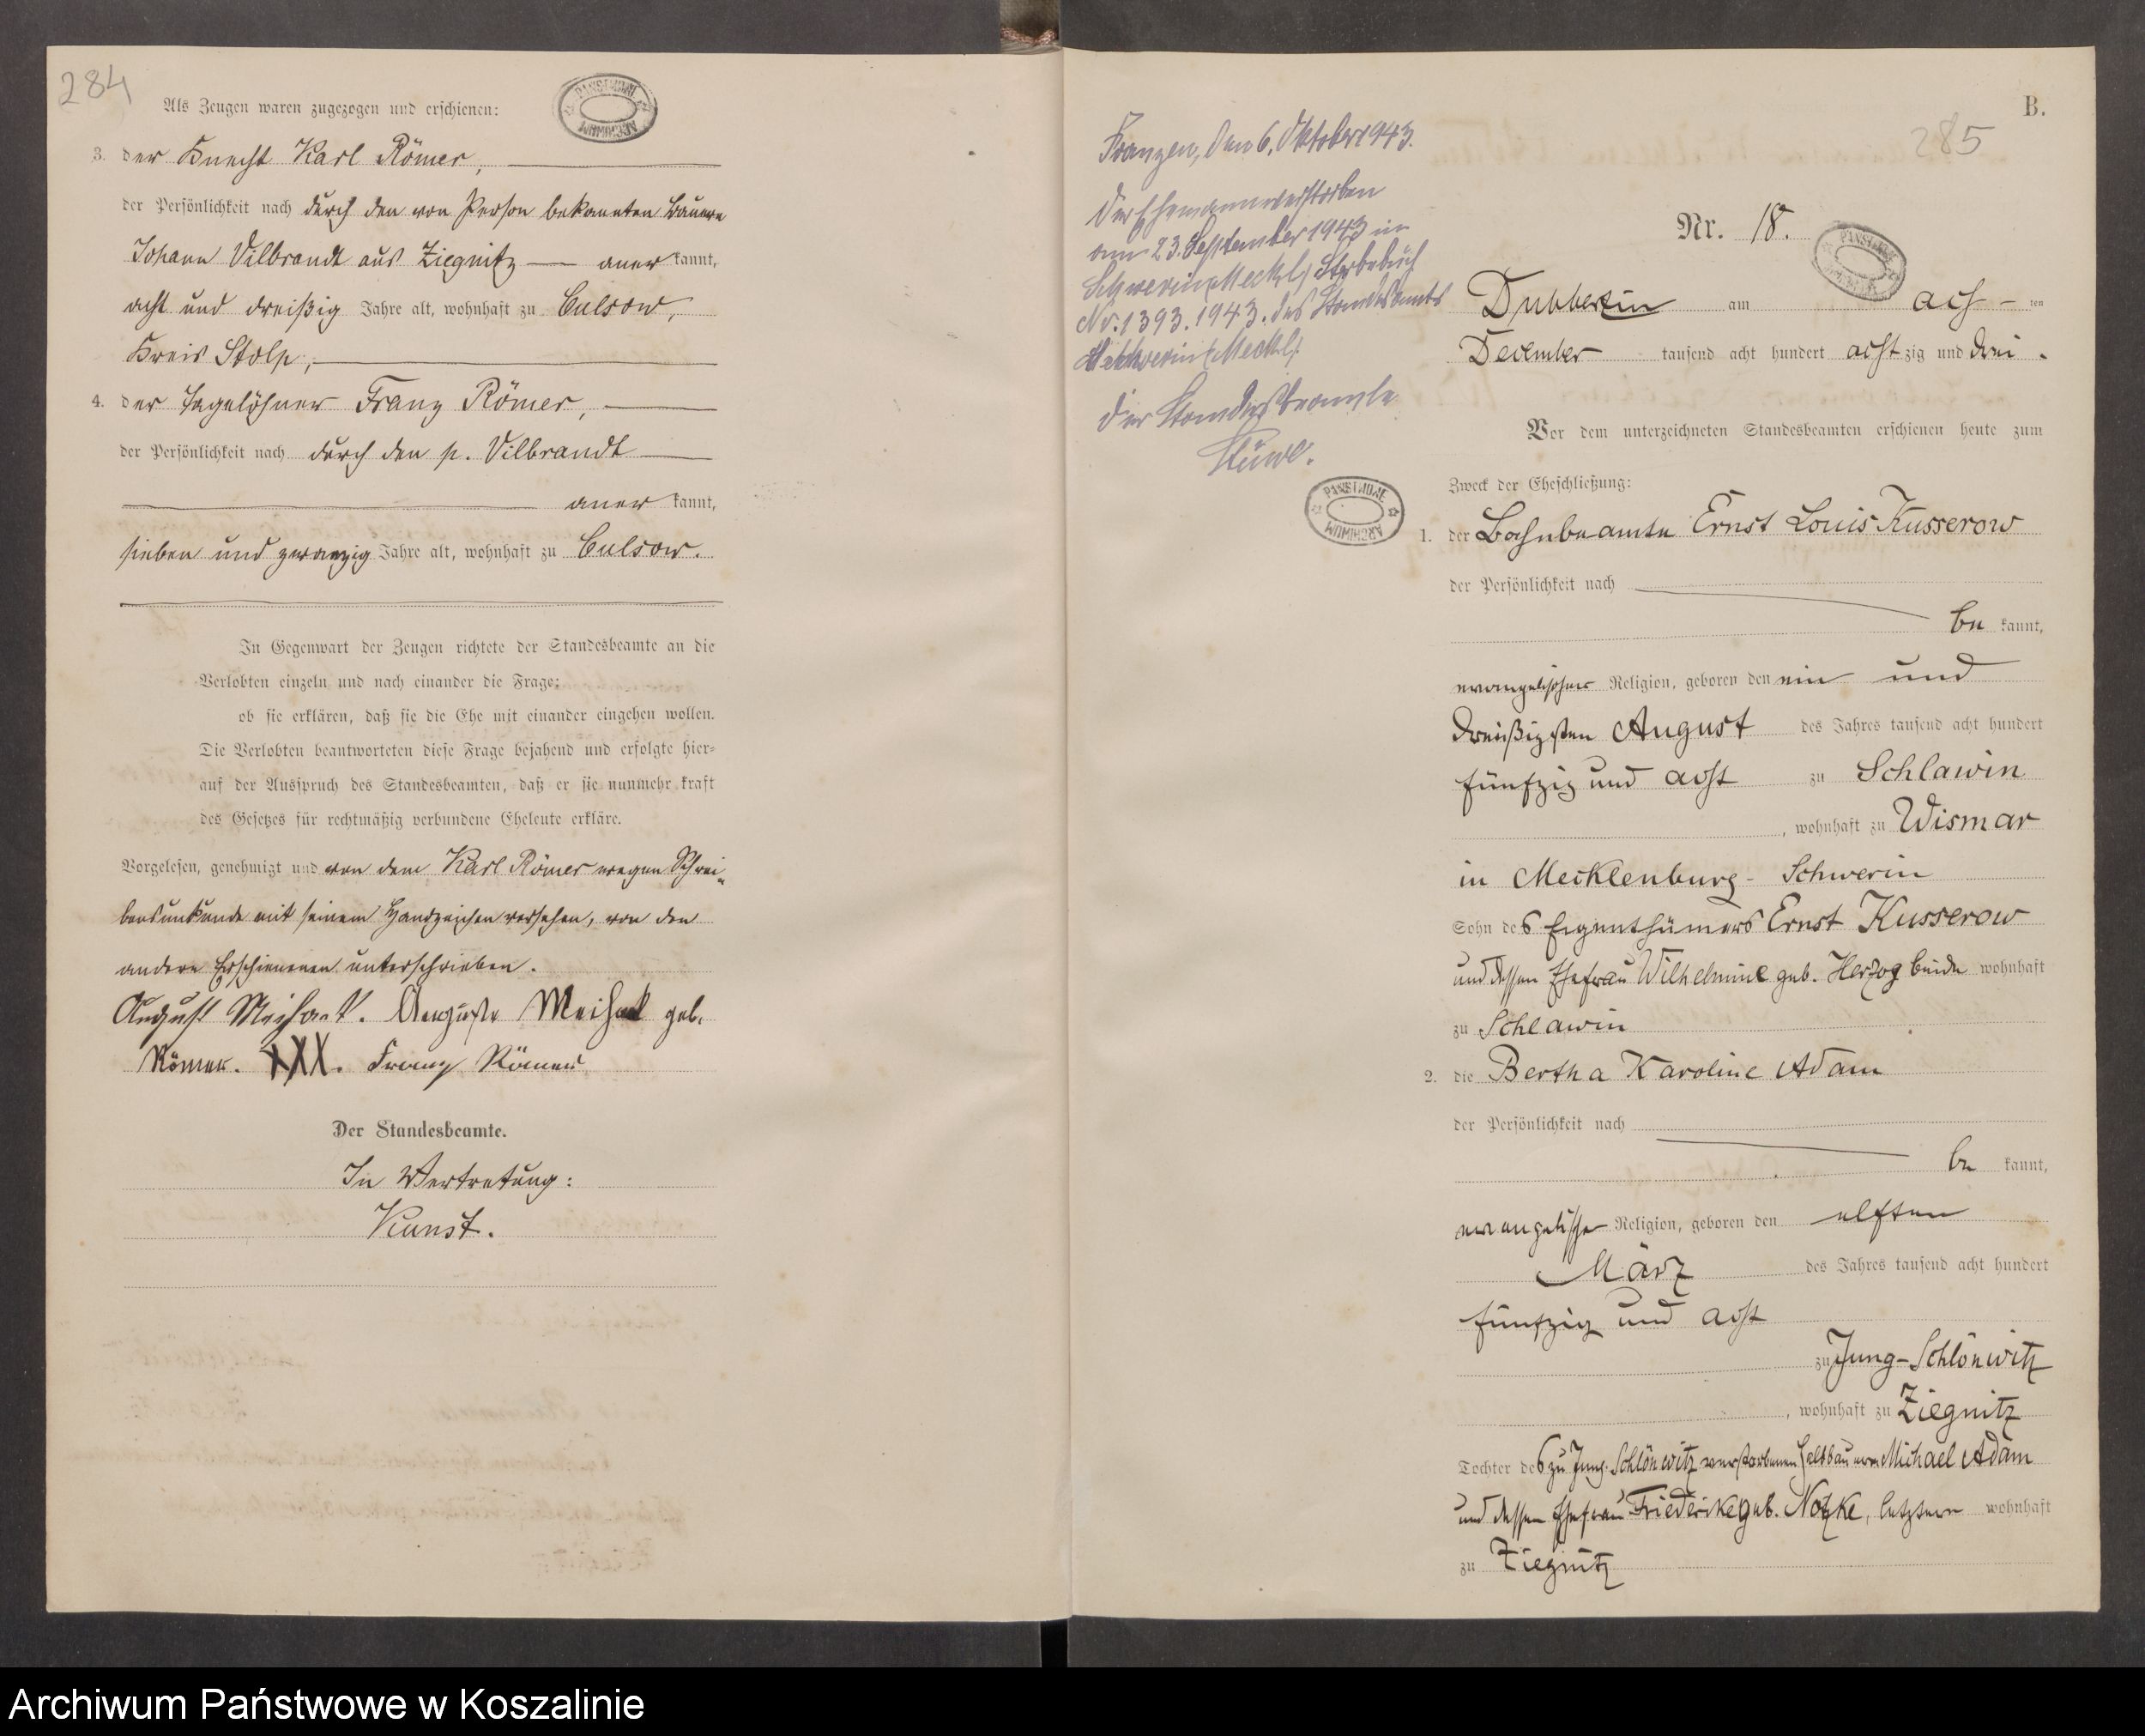 284
Als Zeugen waren zugezogen und erschienen:
PANSTWOWE ARCHIWUM
3. der Knecht Karl Römer,
der Persönlichkeit nach durch den von Person bekannten Bauern
Johann Vilbrandt aus Ziegnitz — anerkannt,
acht und dreißig Jahre alt, wohnhaft zu Culsow,
Kreis Stolp,
4. der Tagelöhner Franz Römer,
der Persönlichkeit nach durch den p. Vilbrandt
anerkannt,
sieben und zwanzig Jahre alt, wohnhaft zu Culsow.
In Gegenwart der Zeugen richtete der Standesbeamte an die
Verlobten einzeln und nach einander die Frage:
ob sie erklären, daß sie die Ehe mit einander eingehen wollen.
Die Verlobten beantworteten diese Frage bejahend und erfolgte hier-
auf der Ausspruch des Standesbeamten, daß er sie nunmehr kraft
des Gesetzes für rechtmäßig verbundene Eheleute erkläre.
Vorgelesen, genehmigt und von dem Karl Römer wegen Schrei-
bensunkunde mit seinem Handzeichen versehen, von den
andern Erschienenen unterschrieben.
August Meihack. Auguste Meihack geb.
Römer. XXX. Franz Römer
Der Standesbeamte.
In Vertretung:
Kunst.
B.
285
Franzen, den 6. Oktober 1943.
Der Ehemann verstorben
am 23. September 1943 in
Schwerin (Meckl) Sterbebuch
Nr. 1393.1943. des Standesamts
Schwerin (Meckl).
Der Standesbeamte
Stüwe.
PANSTWOWE ARCHIWUM
Nr. 18.
PANSTWOWE ARCHIWUM
Dubberzin am ach-ten
December tausend acht hundert achtzig und drei.
Vor dem unterzeichneten Standesbeamten erschienen heute zum
Zweck der Eheschließung:
1. der Bahnbeamte Ernst Louis Kusserow
der Persönlichkeit nach
bekannt,
evangelischer Religion, geboren den ein und
dreißigsten August des Jahres tausend acht hundert
fünfzig und acht zu Schlawin
, wohnhaft zu Wismar
in Mecklenburg-Schwerin
Sohn des Eigenthümers Ernst Kusserow
und dessen Ehefrau Wilhelmine geb. Herzog beide wohnhaft
zu Schlawin
2. die Bertha Karoline Adam
der Persönlichkeit nach
bekannt,
evangelischer Religion, geboren den elften
März des Jahres tausend acht hundert
fünfzig und acht
zu Jung-Schlönwitz
, wohnhaft zu Ziegnitz
Tochter des zu Jung-Schlönwitz verstorbenen Halbbauern Michael Adam
und dessen Ehefrau Friederike geb. Notzke, letztere wohnhaft
zu Ziegnitz
Archiwum Państwowe w Koszalinie